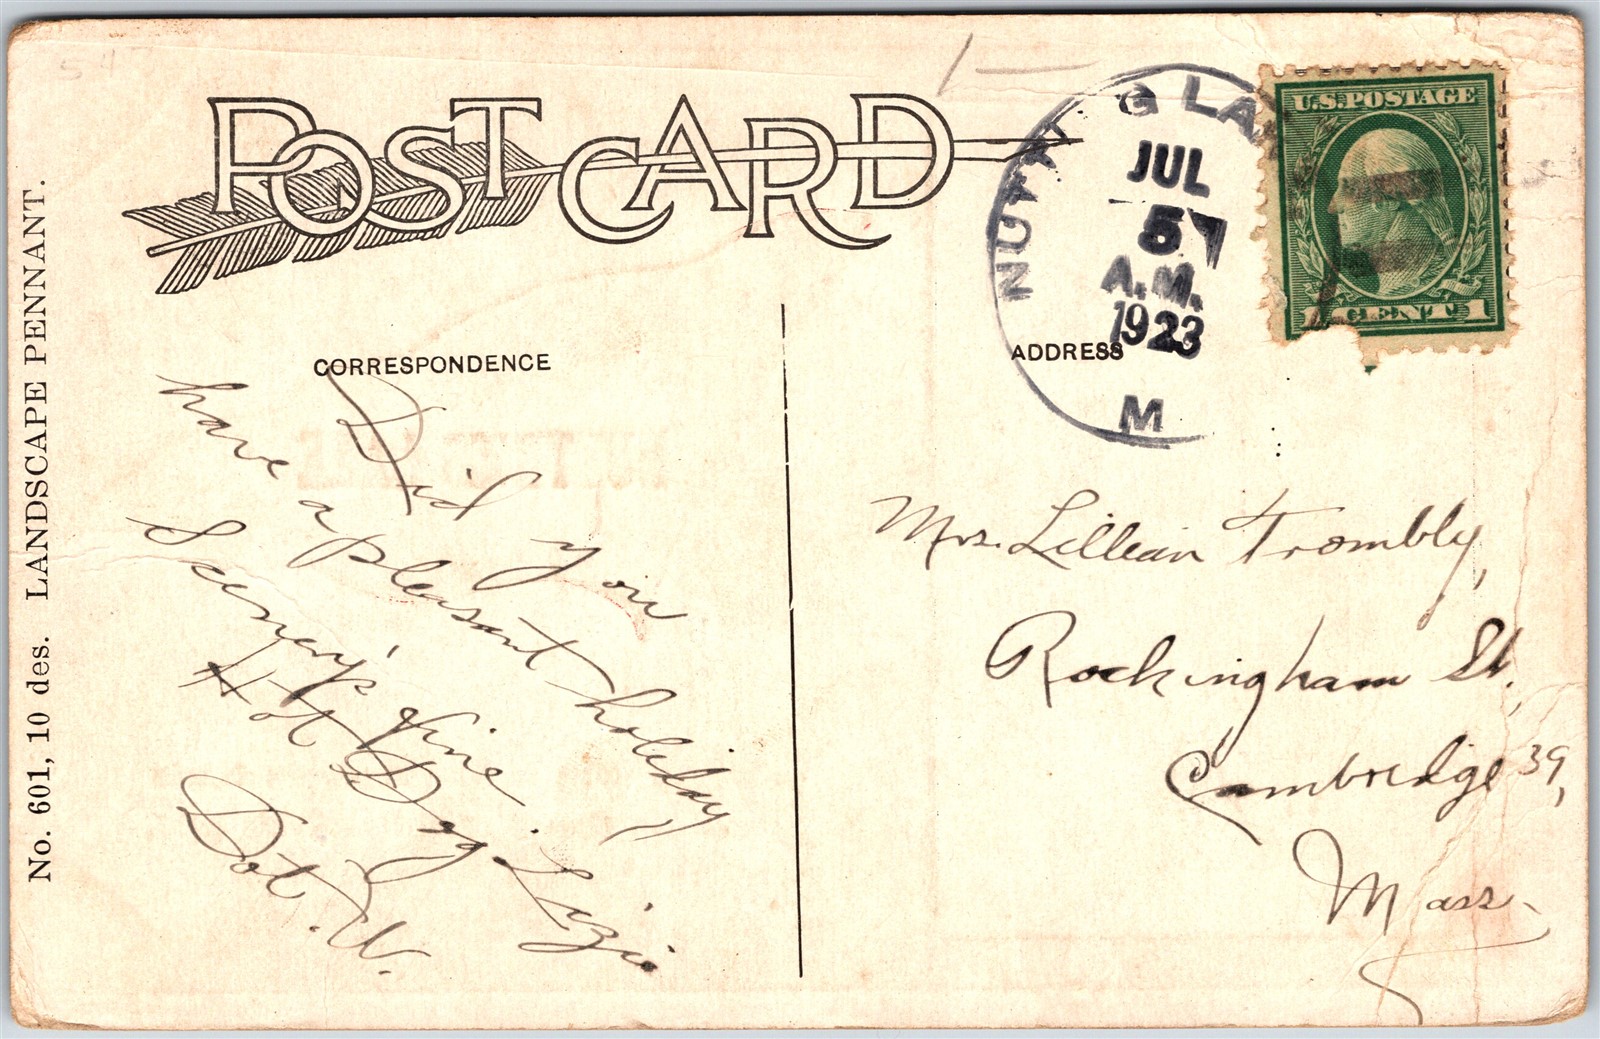 POST CARD
CORRESPONDENCE
ADDRESS
No. 601, 10 des. LANDSCAPE PENNANT.
U.S. POSTAGE
1 CENT 1
NUTT
LA
JUL
5
A.M.
1923
M
Did you
have a pleasant holiday
Scenery's fine.
Hot Dog. Lizzie
Dot. W.
Mrs. Lillian Trombly,
Rockingham St.,
Cambridge 39,
Mass.